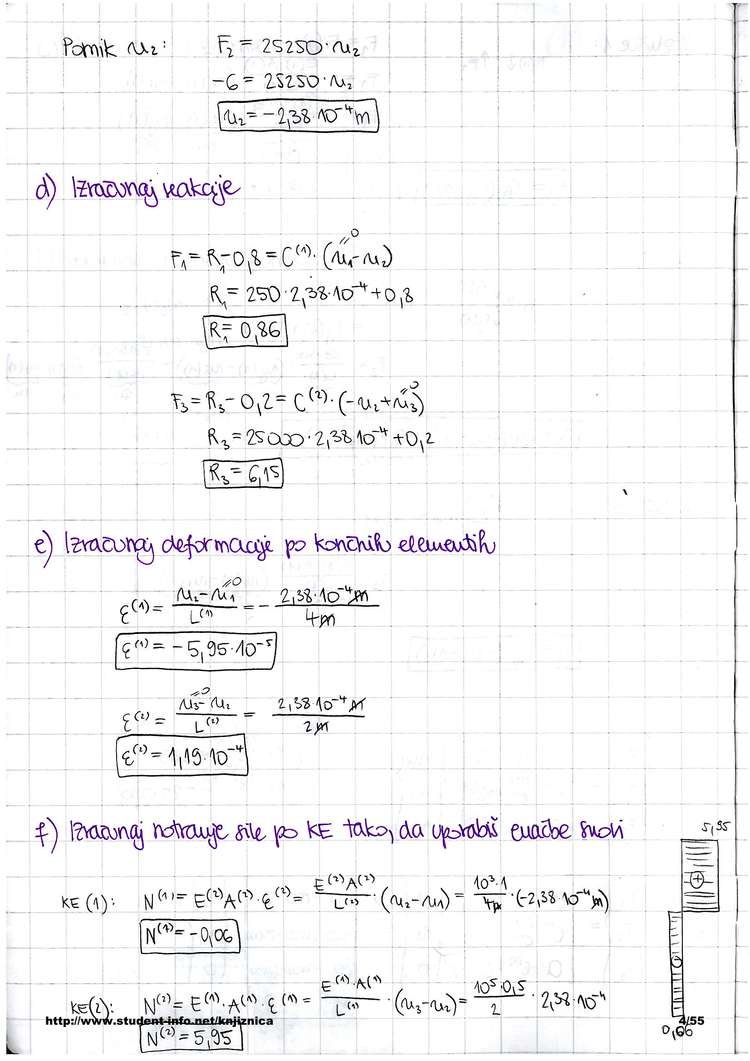 Pomik u₂: F₂ = 25250·u₂
-6 = 25250·u₂
u₂ = -2,38·10⁻⁴m
d) Izračunaj reakcije
F₁ = R₁ - 0,8 = C⁽¹⁾·(u₁ - u₂) =0
R₁ = 250·2,38·10⁻⁴ + 0,8
R₁ = 0,86
F₃ = R₃ - 0,2 = C⁽²⁾·(-u₂ + u₃) =0
R₃ = 25000·2,38·10⁻⁴ + 0,2
R₃ = 6,15
e) Izračunaj deformacije po končnih elementih
ε⁽¹⁾ = (u₂ - u₁)/L⁽¹⁾ = - 2,38·10⁻⁴m/4m =0
ε⁽¹⁾ = -5,95·10⁻⁵
ε⁽²⁾ = (u₃ - u₂)/L⁽²⁾ = 2,38·10⁻⁴m/2m =0
ε⁽²⁾ = 1,19·10⁻⁴
f) Izračunaj notranje sile po KE tako, da uporabiš enačbe snovi
5,95
KE (1): N⁽¹⁾ = E⁽²⁾A⁽²⁾·ε⁽²⁾ = E⁽²⁾A⁽²⁾/L⁽²⁾·(u₂ - u₁) = 10³·1/4m·(-2,38·10⁻⁴m)
+
N⁽¹⁾ = -0,06
KE(2): N⁽²⁾ = E⁽¹⁾·A⁽¹⁾·ε⁽¹⁾ = E⁽¹⁾·A⁽¹⁾/L⁽¹⁾·(u₃ - u₂) = 10⁵·0,5/2·2,38·10⁻⁴
http://www.student-info.net/knjiznica 4/55
N⁽²⁾ = 5,95
0,06